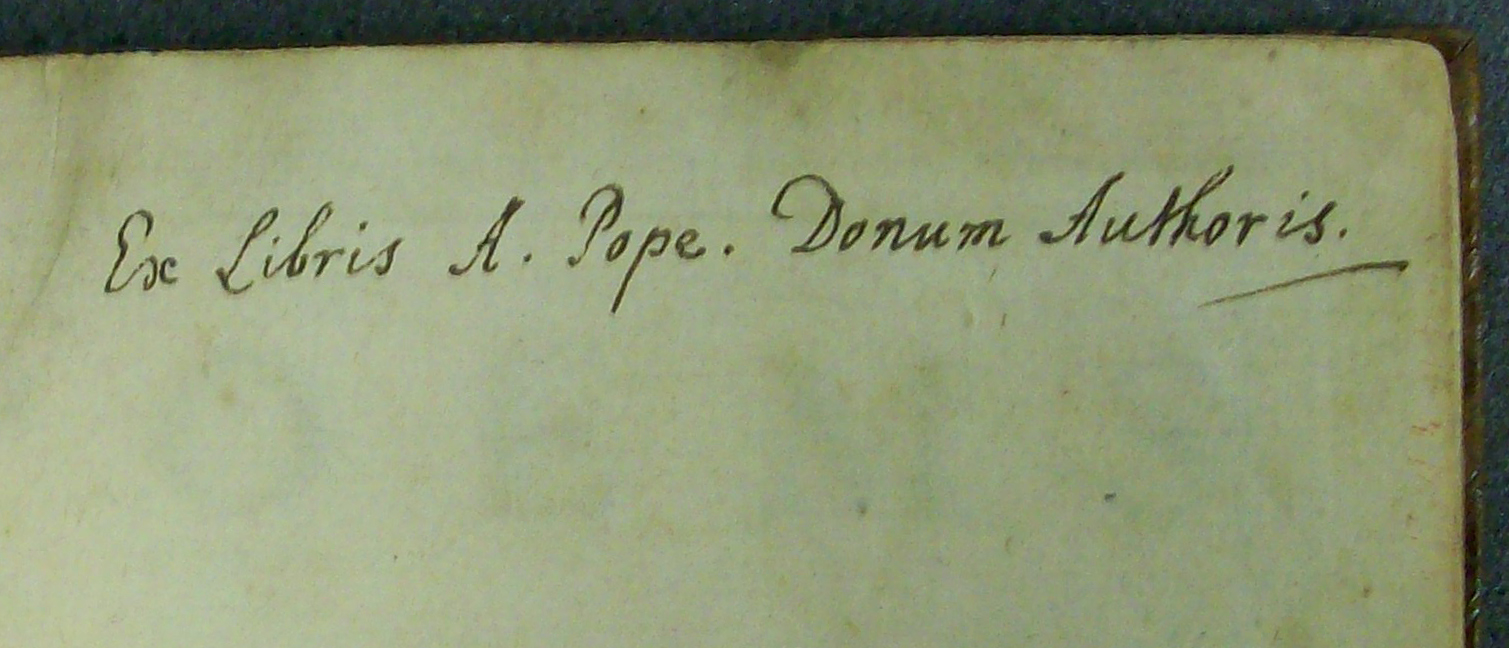 Ex Libris A. Pope. Donum Authoris.